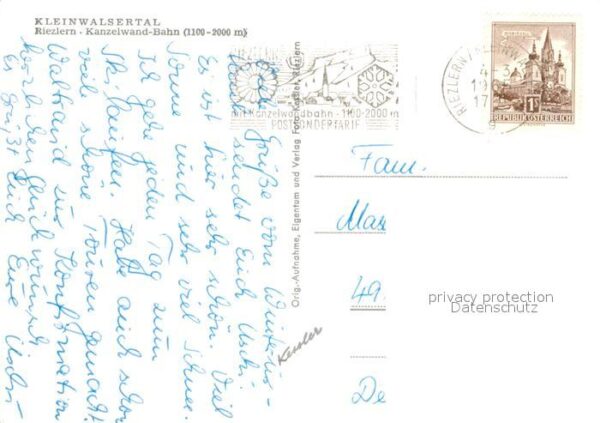 KLEINWALSERTAL
Riezlern - Kanzelwand-Bahn (1100-2000 m)
Grüße vom Winterur-
laub sendet Euch Uschi.
Es ist hier sehr schön. Viel
Sonne und sehr viel Schnee.
Ich gehe jeden Tag zum
Skilaufen. Habe auch schon
viele schöne Touren gemacht.
Waltraud zur Konfirmation
herzlichen Glückwunsch
Es grüßt Euch Eure Uschi
Orig.-Aufnahme, Eigentum und Verlag Foto Riezlern
mit Kanzelwandbahn - 1100-2000 m
POSTSONDERTARIF
RIEZLERN
4. 3.
17
1S
REPUBLIK ÖSTERREICH
Fam.
Mar
49
De
Kessler
privacy protection
Datenschutz